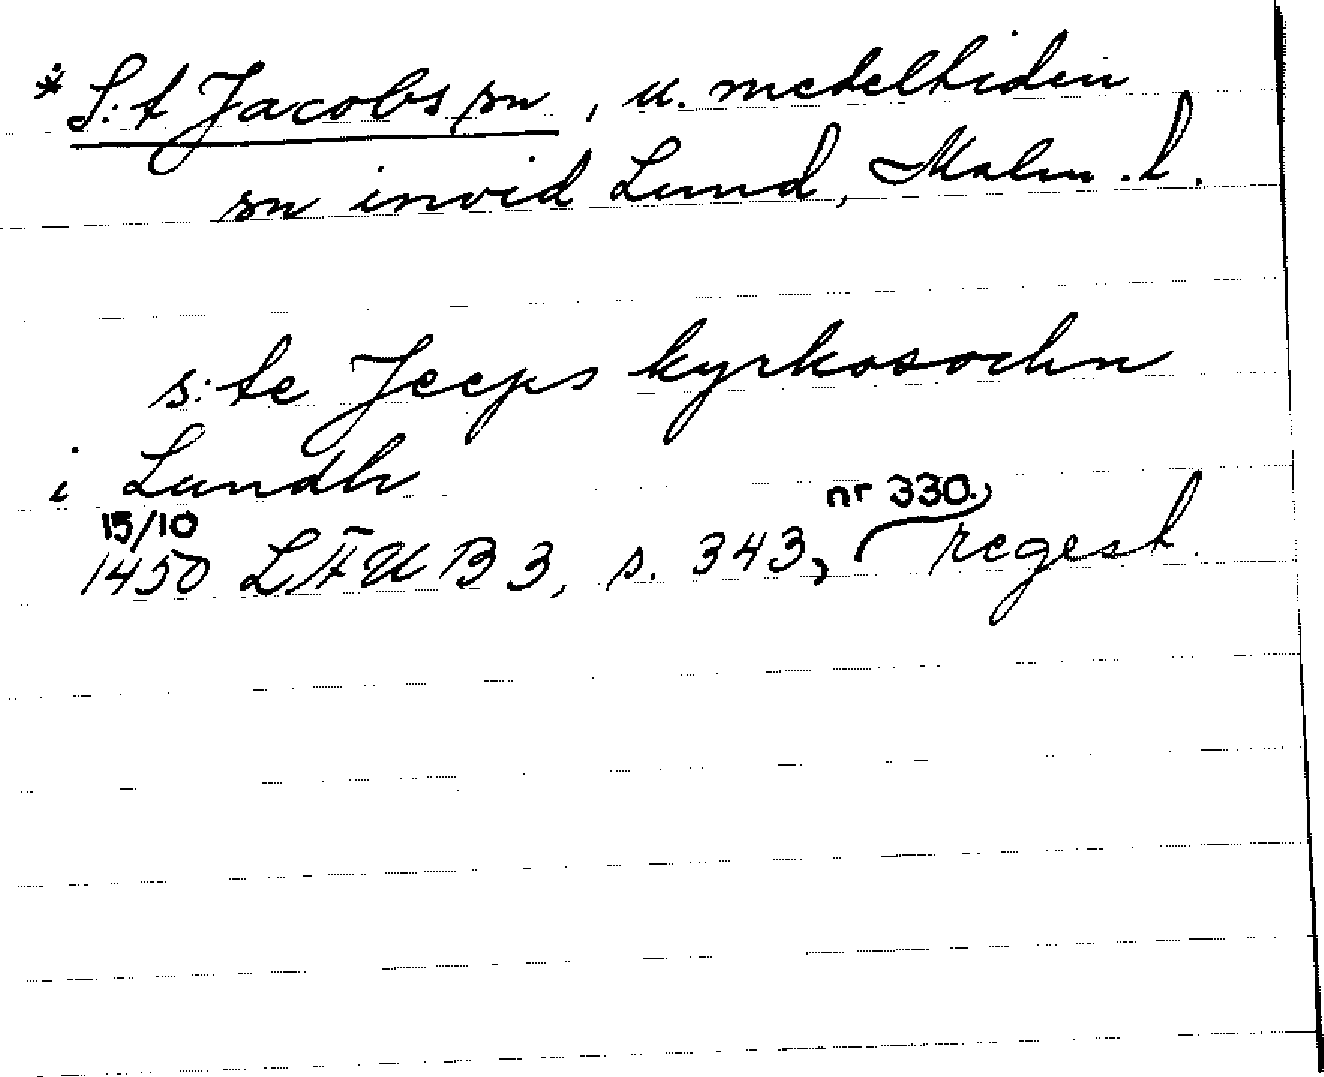 * S:t Jacobs sn, u. medeltiden
sn invid Lund, Malm. l.
s:te Jeeps kyrkosochn
i Lundh
15/10 nr 330.
1450 LÄUB 3, s. 343, regest.